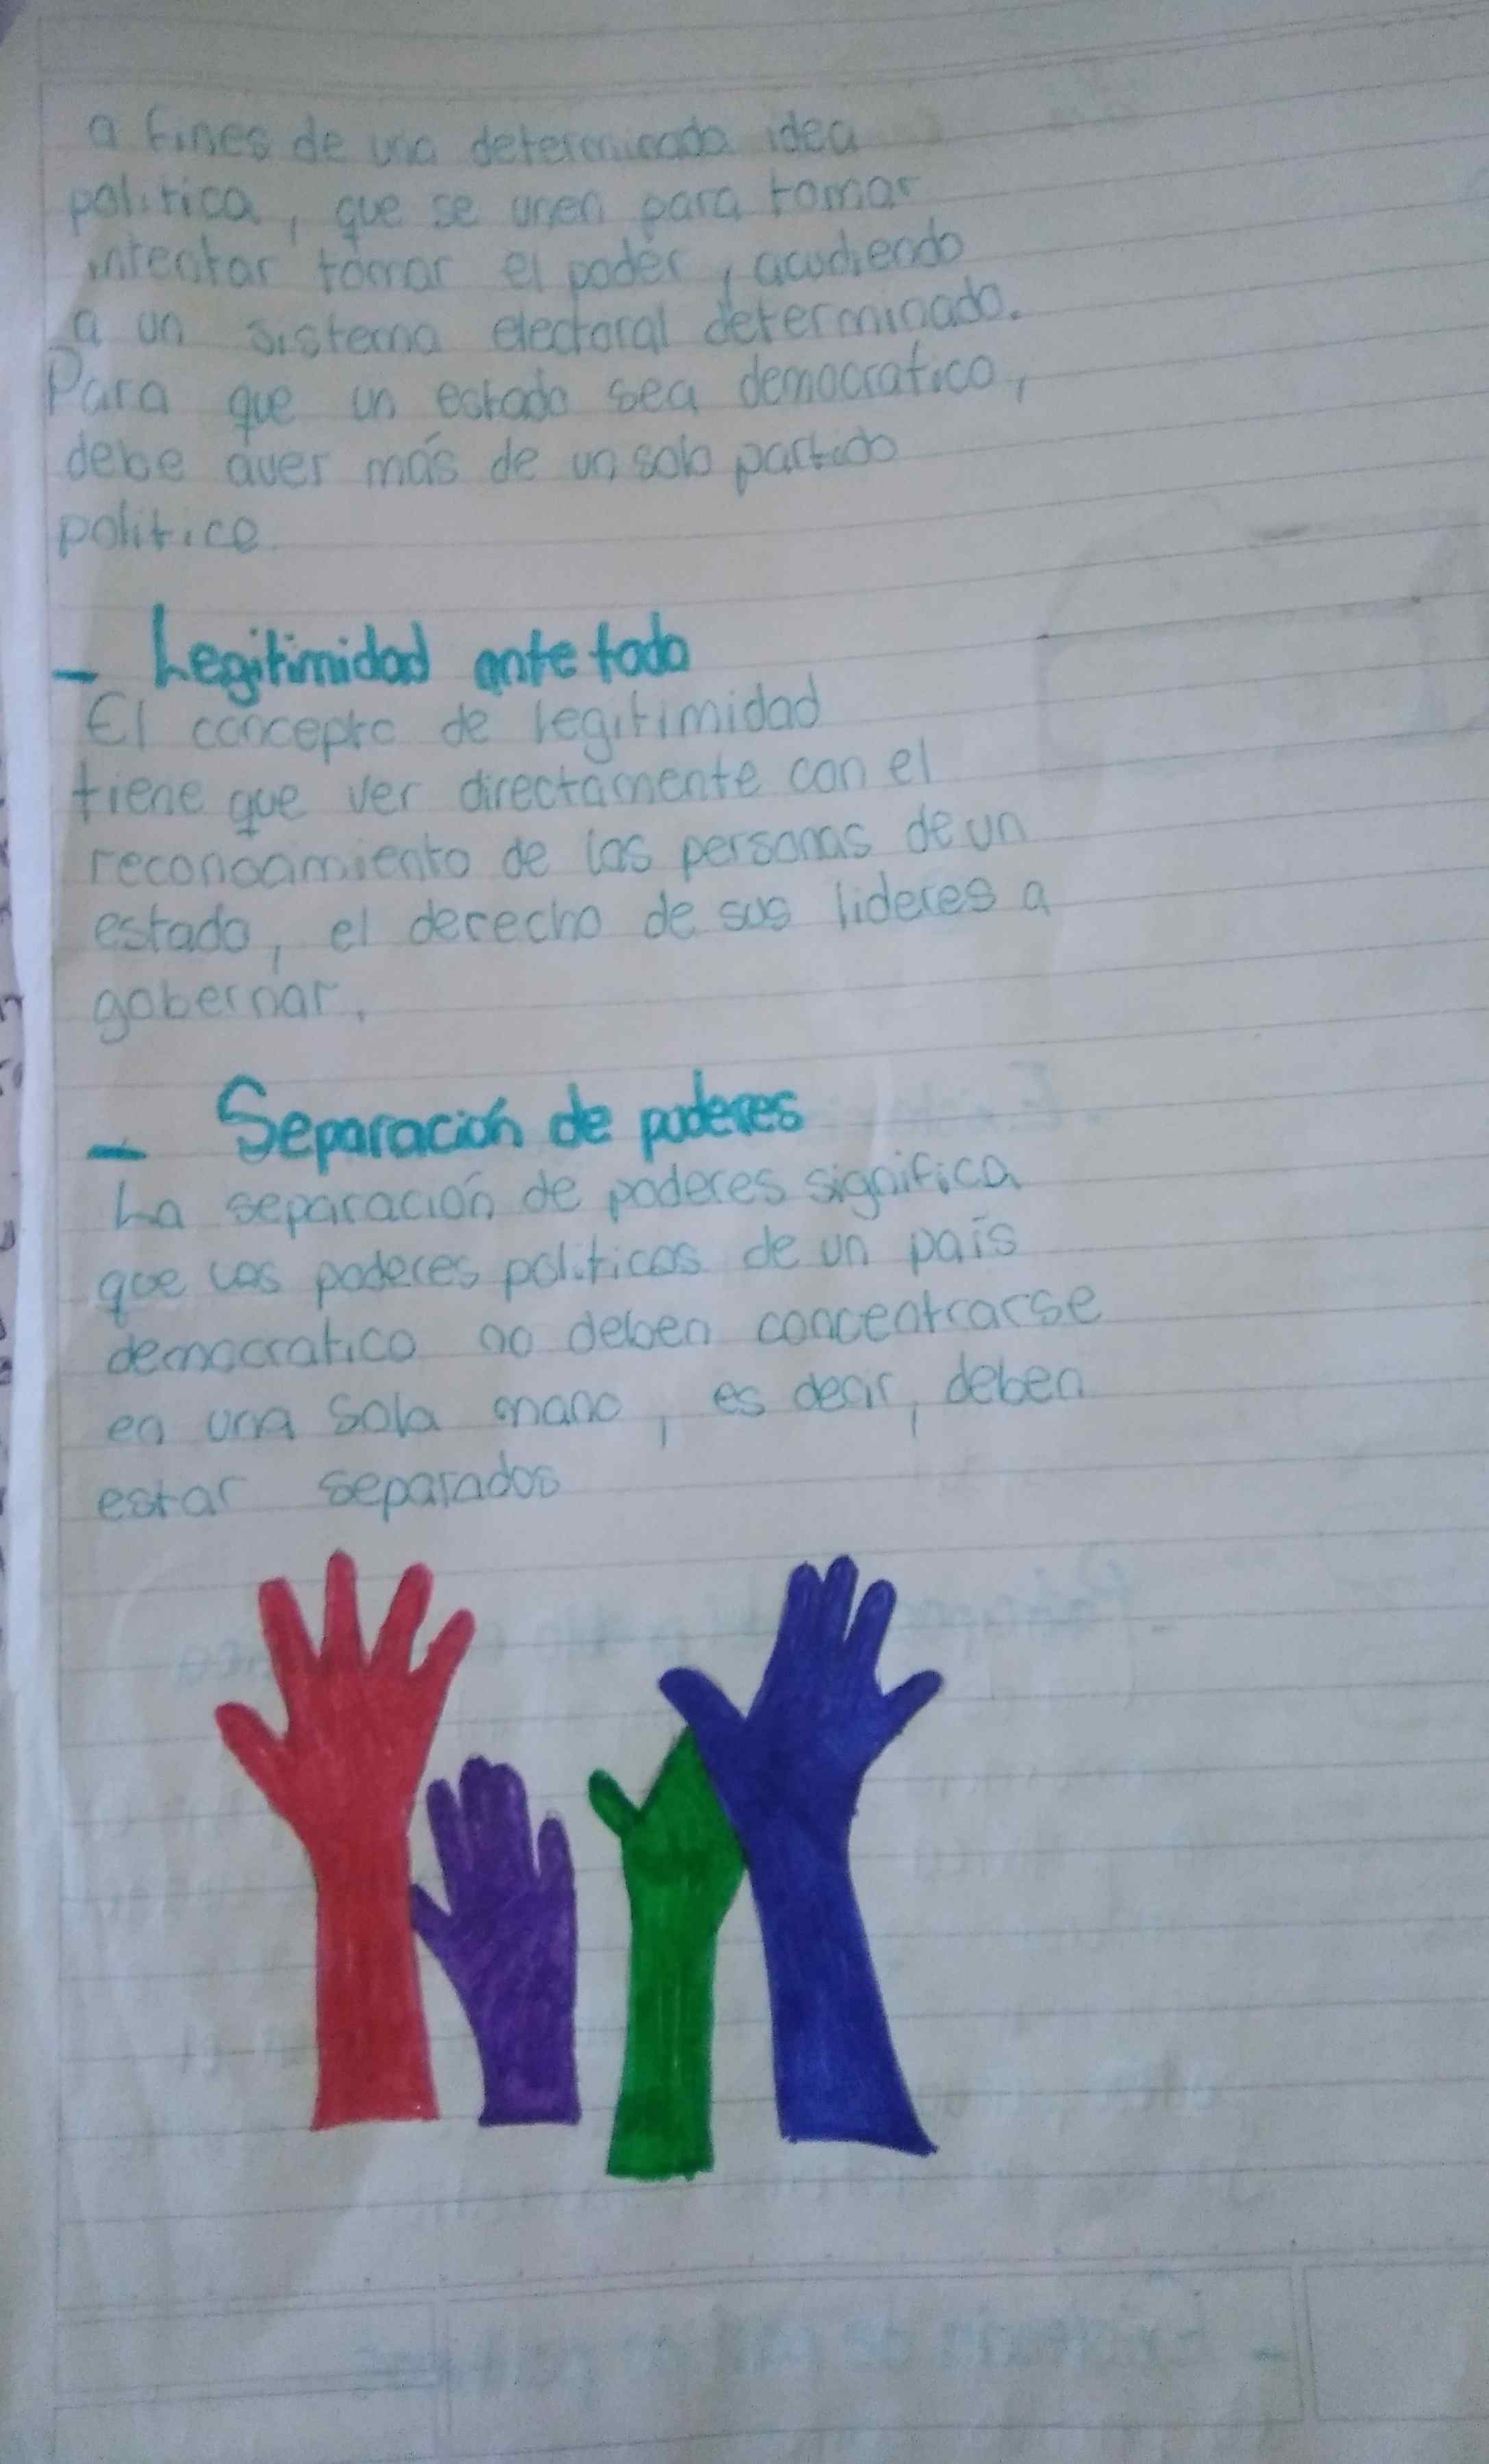 a fines de una determinada idea
politica, que se unen para tomar
intentar tomar el poder, acudiendo
a un sistema electoral determinado.
Para que un estado sea democratico,
debe aver más de un solo partido
politico.
- Legitimidad ante todo
El concepto de legitimidad
tiene que ver directamente con el
reconocimiento de las personas de un
estado, el derecho de sus lideres a
gobernar.
- Separación de poderes
La separación de poderes significa
que los poderes politicos de un país
democratico no deben concentrarse
en una sola mano, es decir, deben
estar separados